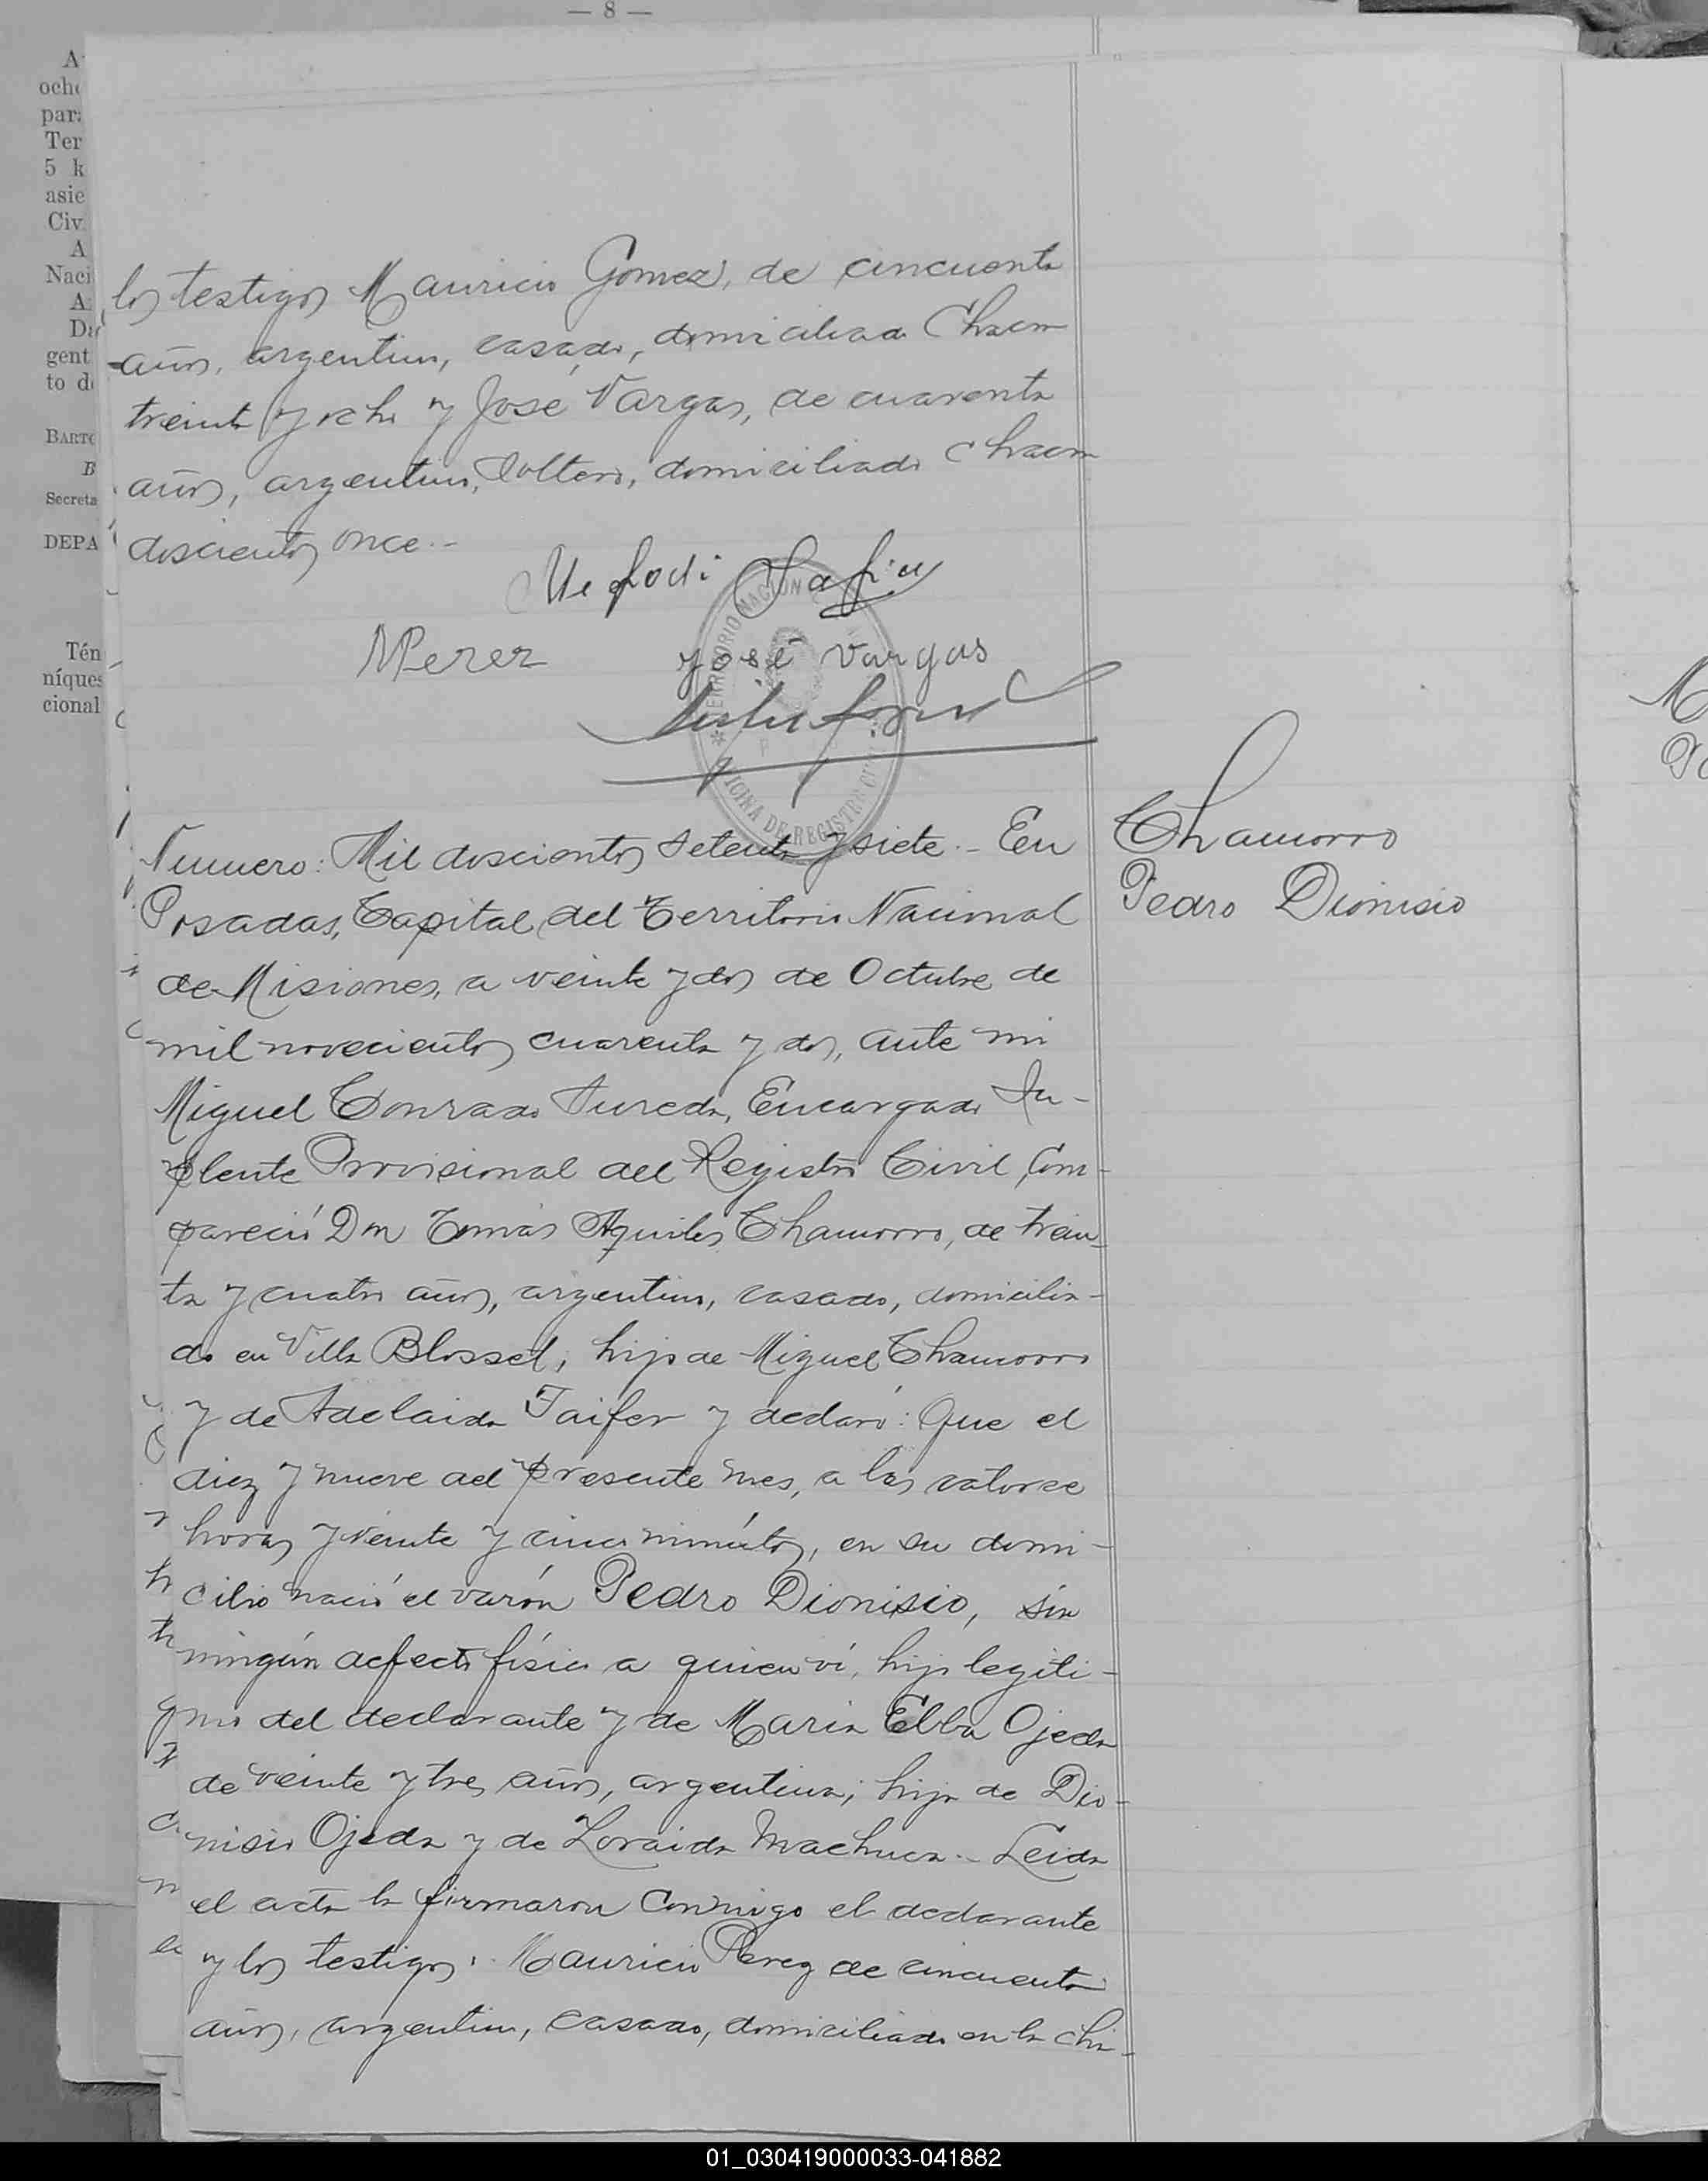 — 8 —
A
och
par
Ter
5 k
asie
Civ
A
Naci
A
Da
gent
to d
BARTO
B
Secreta
DEPA
Tén
níques
cional
los testigos Mauricio Gomez, de cincuenta
años, argentino, casado, domiciliado Chacra
treinta y ocho y José Vargas, de cuarenta
años, argentino, soltero, domiciliado Chacra
doscientos once.-
Mefodi
MPerez José Vargas
TERRITORIO NACION
OFICINA DE REGISTRO CIVIL
Chamorro
Pedro Dionisio
Numero: Mil doscientos setenta y siete.- En
Posadas, Capital del Territorio Nacional
de Misiones, a veinte y dos de Octubre de
mil novecientos cuarenta y dos, ante mi
Miguel Conrado Sureda, Encargado Su-
plente Provisional del Registro Civil, Com-
pareció Don Tomás Aquiles Chamorro, de trein-
ta y cuatro años, argentino, casado, domicilia-
do en Villa Blosset, hijo de Miguel Chamorro
y de Adelaida Taifer y declaró: Que el
diez y nueve del presente mes, a las catorce
horas y veinte y cinco minutos, en su domi-
cilio nació el varón Pedro Dionisio, sin
ningún defecto físico a quien ví, hijo legíti-
mo del declarante y de Maria Elba Ojeda
de veinte y tres años, argentina, hija de Dio-
nisio Ojeda y de Zoraida Machuca.- Leida
el acta la firmaron conmigo el declarante
y los testigos: Mauricio Perez de cincuenta
años, argentino, casado, domiciliado en la cha-
01_030419000033-041882